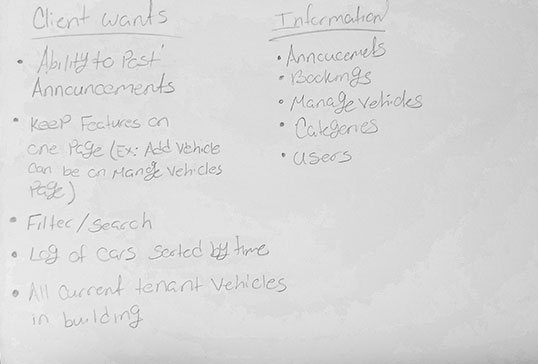 Client wants
• Ability to Post
Announcements
• Keep Features on
one Page (Ex: Add Vehicle
can be on Manage Vehicles
Page)
• Filter/search
• Log of cars sorted by time
• All current tenant vehicles
in building
Information
• Annoucemets
• Bookings
• Manage vehicles
• Categories
• users